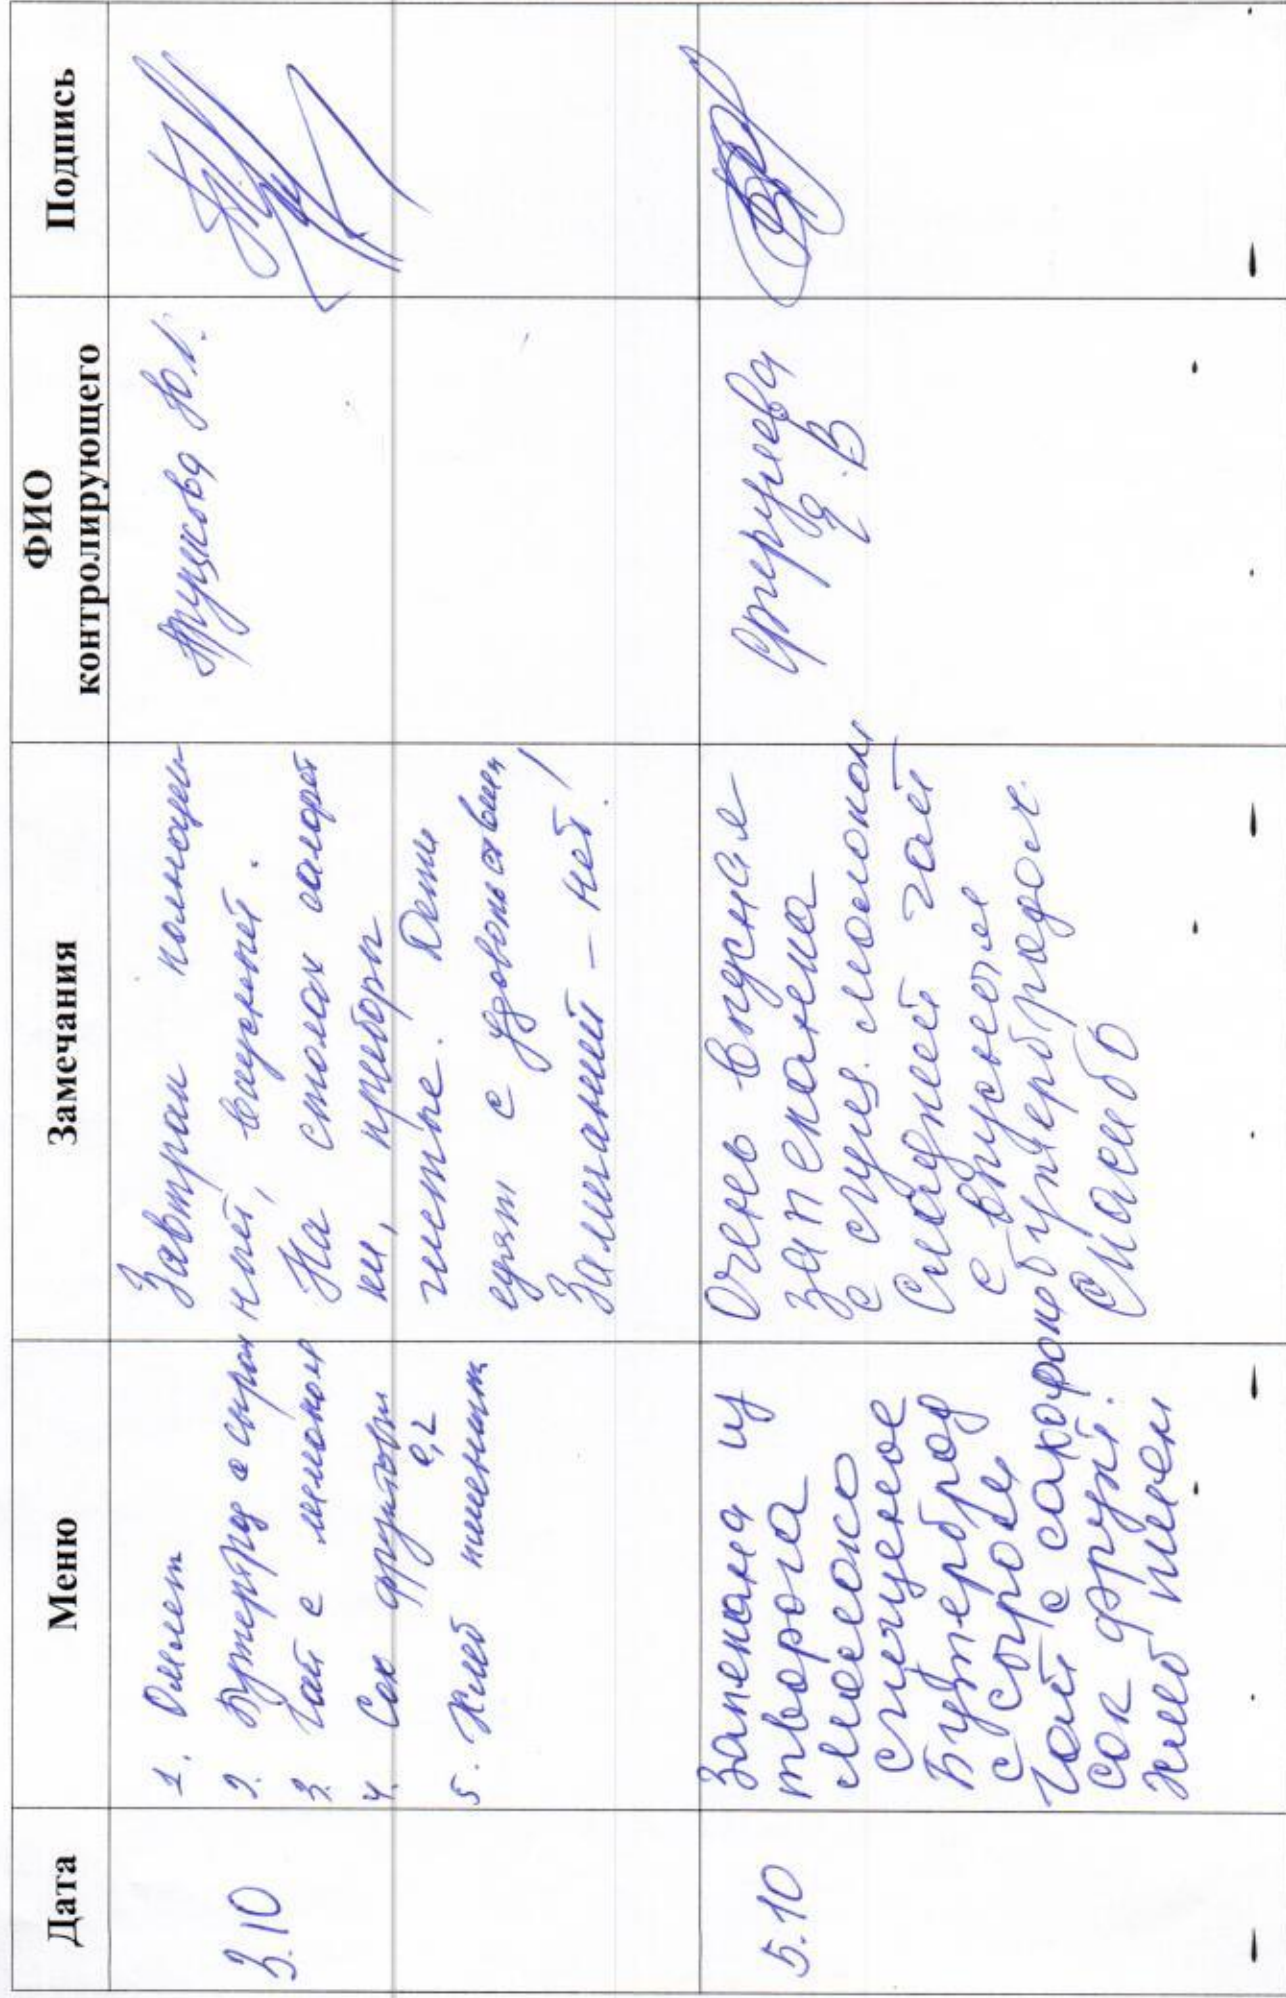 Дата Меню Замечания ФИО Подпись
контролирующего
3.10
1. Омлет
2. Бутерброд с сыром
3. Чай с лимоном
4. Сок фруктовый
0,2
5. Хлеб пшеничн
Завтрак полноцен
ный, вкусный.
На столах салфет
ки, приборы
чистые. Дети
едят с удовольствием
Замечаний - нет!
Ю.
5.10
Запеканка из
творога
Молоко
сгущеное
Бутерброд
с сыром
Чай с сахаром
сок фрукт.
хлеб пшен
Очень вкусная
запеканка
с сгущ. молоком
Сладкий чай
с вкусным
бутербродом.
Спасибо
В